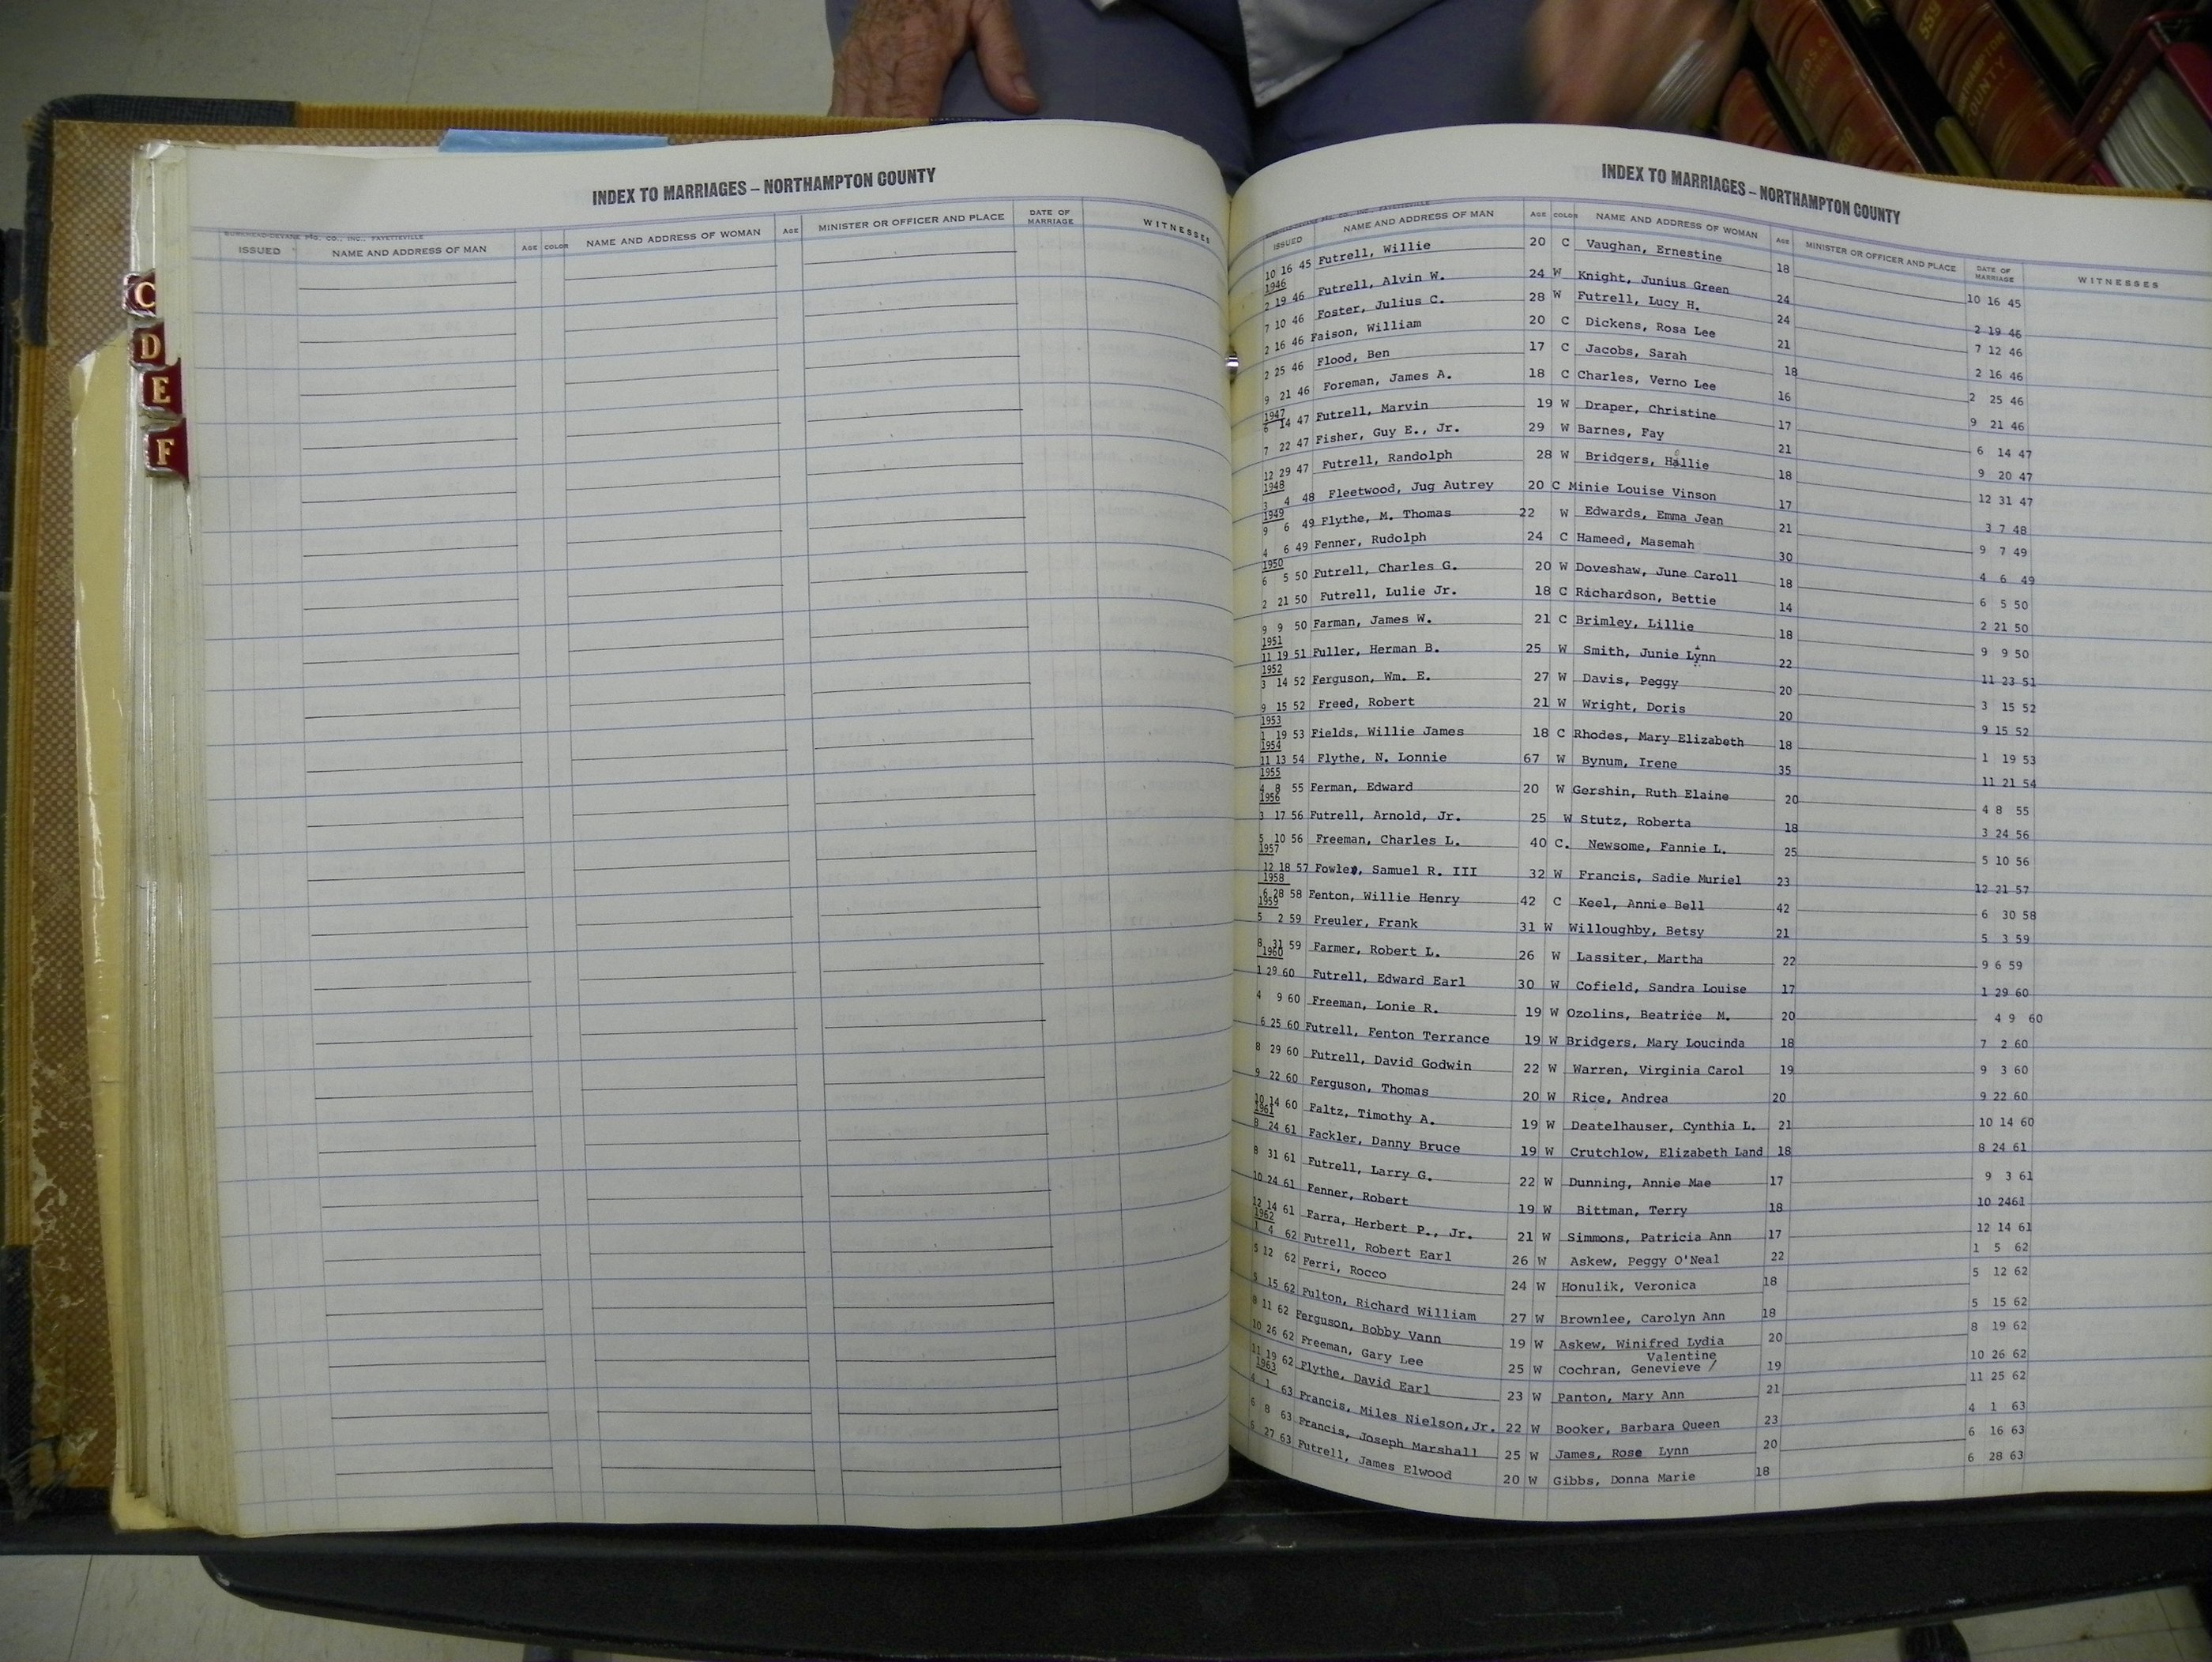 INDEX TO MARRIAGES – NORTHAMPTON COUNTY
BURKHEAD-DEVANE PTG. CO., INC., FAYETTEVILLE
ISSUED NAME AND ADDRESS OF MAN AGE COLOR NAME AND ADDRESS OF WOMAN AGE MINISTER OR OFFICER AND PLACE DATE OF MARRIAGE WITNESSES
C
D
E
F
INDEX TO MARRIAGES – NORTHAMPTON COUNTY
ISSUED NAME AND ADDRESS OF MAN AGE COLOR NAME AND ADDRESS OF WOMAN AGE MINISTER OR OFFICER AND PLACE DATE OF MARRIAGE WITNESSES
10 16 45 Futrell, Willie 20 C Vaughan, Ernestine 18 10 16 45
1946
2 19 46 Futrell, Alvin W. 24 W Knight, Junius Green 24 2 19 46
7 10 46 Foster, Julius C. 28 W Futrell, Lucy H. 24 7 12 46
2 16 46 Faison, William 20 C Dickens, Rosa Lee 21 2 16 46
2 25 46 Flood, Ben 17 C Jacobs, Sarah 18 2 25 46
9 21 46 Foreman, James A. 18 C Charles, Verno Lee 16 9 21 46
1947
6 14 47 Futrell, Marvin 19 W Draper, Christine 17 6 14 47
7 22 47 Fisher, Guy E., Jr. 29 W Barnes, Fay 21 9 20 47
12 29 47 Futrell, Randolph 28 W Bridgers, Hallie 18 12 31 47
1948
3 4 48 Fleetwood, Jug Autrey 20 C Minie Louise Vinson 17 3 7 48
1949
9 6 49 Flythe, M. Thomas 22 W Edwards, Emma Jean 21 9 7 49
4 6 49 Fenner, Rudolph 24 C Hameed, Masemah 30 4 6 49
1950
6 5 50 Futrell, Charles G. 20 W Doveshaw, June Caroll 18 6 5 50
2 21 50 Futrell, Lulie Jr. 18 C Richardson, Bettie 14 2 21 50
9 9 50 Farman, James W. 21 C Brimley, Lillie 18 9 9 50
1951
11 19 51 Fuller, Herman B. 25 W Smith, Junie Lynn 22 11 23 51
1952
3 14 52 Ferguson, Wm. E. 27 W Davis, Peggy 20 3 15 52
9 15 52 Freed, Robert 21 W Wright, Doris 20 9 15 52
1953
1 19 53 Fields, Willie James 18 C Rhodes, Mary Elizabeth 18 1 19 53
1954
11 13 54 Flythe, N. Lonnie 67 W Bynum, Irene 35 11 21 54
1955
4 8 55 Ferman, Edward 20 W Gershin, Ruth Elaine 20 4 8 55
1956
3 17 56 Futrell, Arnold, Jr. 25 W Stutz, Roberta 18 3 24 56
5 10 56 Freeman, Charles L. 40 C. Newsome, Fannie L. 25 5 10 56
1957
12 18 57 Fowler, Samuel R. III 32 W Francis, Sadie Muriel 23 12 21 57
1958
6 28 58 Fenton, Willie Henry 42 C Keel, Annie Bell 42 6 30 58
1959
5 2 59 Freuler, Frank 31 W Willoughby, Betsy 21 5 3 59
8 31 59 Farmer, Robert L. 26 W Lassiter, Martha 22 9 6 59
1960
1 29 60 Futrell, Edward Earl 30 W Cofield, Sandra Louise 17 1 29 60
4 9 60 Freeman, Lonie R. 19 W Ozolins, Beatrice M. 20 4 9 60
6 25 60 Futrell, Fenton Terrance 19 W Bridgers, Mary Loucinda 18 7 2 60
8 29 60 Futrell, David Godwin 22 W Warren, Virginia Carol 19 9 3 60
9 22 60 Ferguson, Thomas 20 W Rice, Andrea 20 9 22 60
10 14 60 Faltz, Timothy A. 19 W Deatelhauser, Cynthia L. 21 10 14 60
1961
8 24 61 Fackler, Danny Bruce 19 W Crutchlow, Elizabeth Land 18 8 24 61
8 31 61 Futrell, Larry G. 22 W Dunning, Annie Mae 17 9 3 61
10 24 61 Fenner, Robert 19 W Bittman, Terry 18 10 2461
12 14 61 Farra, Herbert P., Jr. 21 W Simmons, Patricia Ann 17 12 14 61
1962
1 4 62 Futrell, Robert Earl 26 W Askew, Peggy O'Neal 22 1 5 62
5 12 62 Ferri, Rocco 24 W Honulik, Veronica 18 5 12 62
5 15 62 Fulton, Richard William 27 W Brownlee, Carolyn Ann 18 5 15 62
8 11 62 Ferguson, Bobby Vann 19 W Askew, Winifred Lydia 20 8 19 62
Valentine
10 26 62 Freeman, Gary Lee 25 W Cochran, Genevieve / 19 10 26 62
11 19 62 Flythe, David Earl 23 W Panton, Mary Ann 21 11 25 62
1963
4 1 63 Francis, Miles Nielson,Jr. 22 W Booker, Barbara Queen 23 4 1 63
6 8 63 Francis, Joseph Marshall 25 W James, Rose Lynn 20 6 16 63
6 27 63 Futrell, James Elwood 20 W Gibbs, Donna Marie 18 6 28 63
550
NORTHAMPTON COUNTY